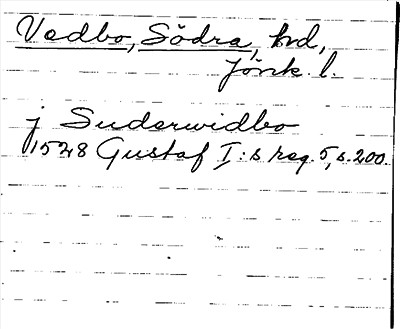 Vedbo, Södra, hd,
Jönk. l.
j Suderwidbo
1528 Gustaf I:s reg. 5, s. 200.